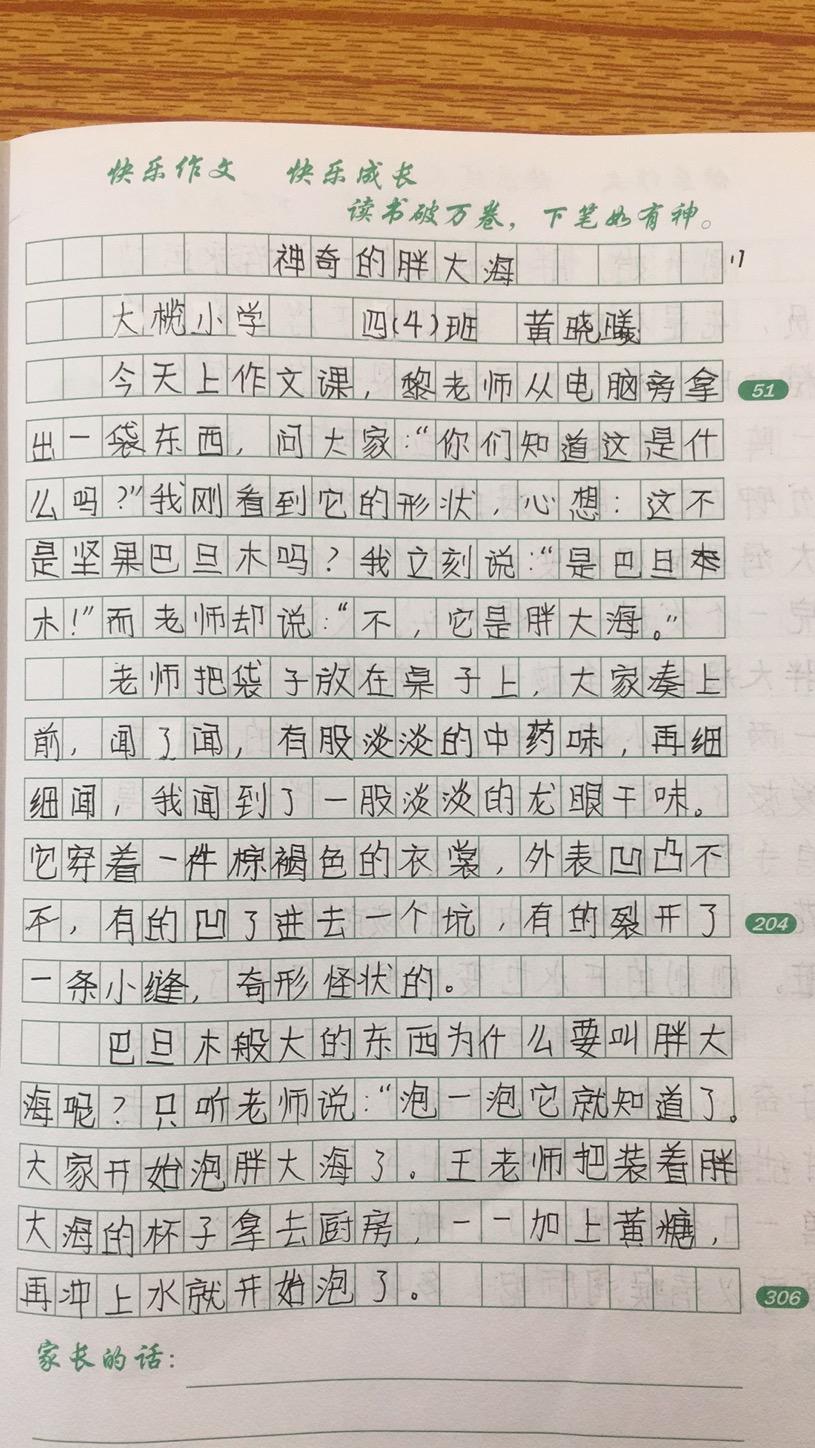 快乐作文 快乐成长
读书破万卷，下笔如有神。
神奇的胖大海
大榄小学 四(4)班 黄晓曦
今天上作文课，黎老师从电脑旁拿
51
出一袋东西，问大家：“你们知道这是什
么吗？”我刚看到它的形状，心想：这不
是坚果巴旦木吗？我立刻说：“是巴旦
木！”而老师却说：“不，它是胖大海。”
老师把袋子放在桌子上，大家凑上
前，闻了闻，有股淡淡的中药味，再细
细闻，我闻到了一股淡淡的龙眼干味。
它穿着一件棕褐色的衣裳，外表凹凸不
平，有的凹了进去一个坑，有的裂开了
204
一条小缝，奇形怪状的。
巴旦木般大的东西为什么要叫胖大
海呢？只听老师说：“泡一泡它就知道了。
大家开始泡胖大海了。王老师把装着胖
大海的杯子拿去厨房，一一加上黄糖，
再冲上水就开始泡了。
306
家长的话：